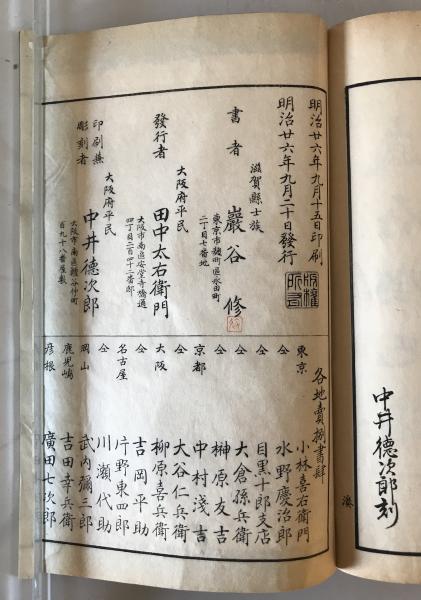 中井德次郎刻
明治廿六年九月十五日印刷
明治廿六年九月二十日發行
版權所有
滋賀縣士族
書者 巖谷修
東京市麹町區永田町
二丁目七番地
大阪府平民
發行者 田中太右衛門
大阪市南區安堂寺橋通
四丁目二百四十二番邸
印刷兼
彫刻者
大阪府平民
中井德次郎
大阪市南區鰻谷仲町
百九十八番屋敷
各地賣捌書肆
東京 小林喜右衛門
仝 水野慶治郎
仝 目黒十郎支店
仝 大倉孫兵衛
仝 榊原友吉
京都 中村淺吉
仝 大谷仁兵衛
大阪 柳原喜兵衛
仝 吉岡平助
名古屋 片野東四郎
仝 川瀬代助
岡山 武内彌三郎
鹿児嶋 吉田幸兵衛
彦根 廣田七次郎